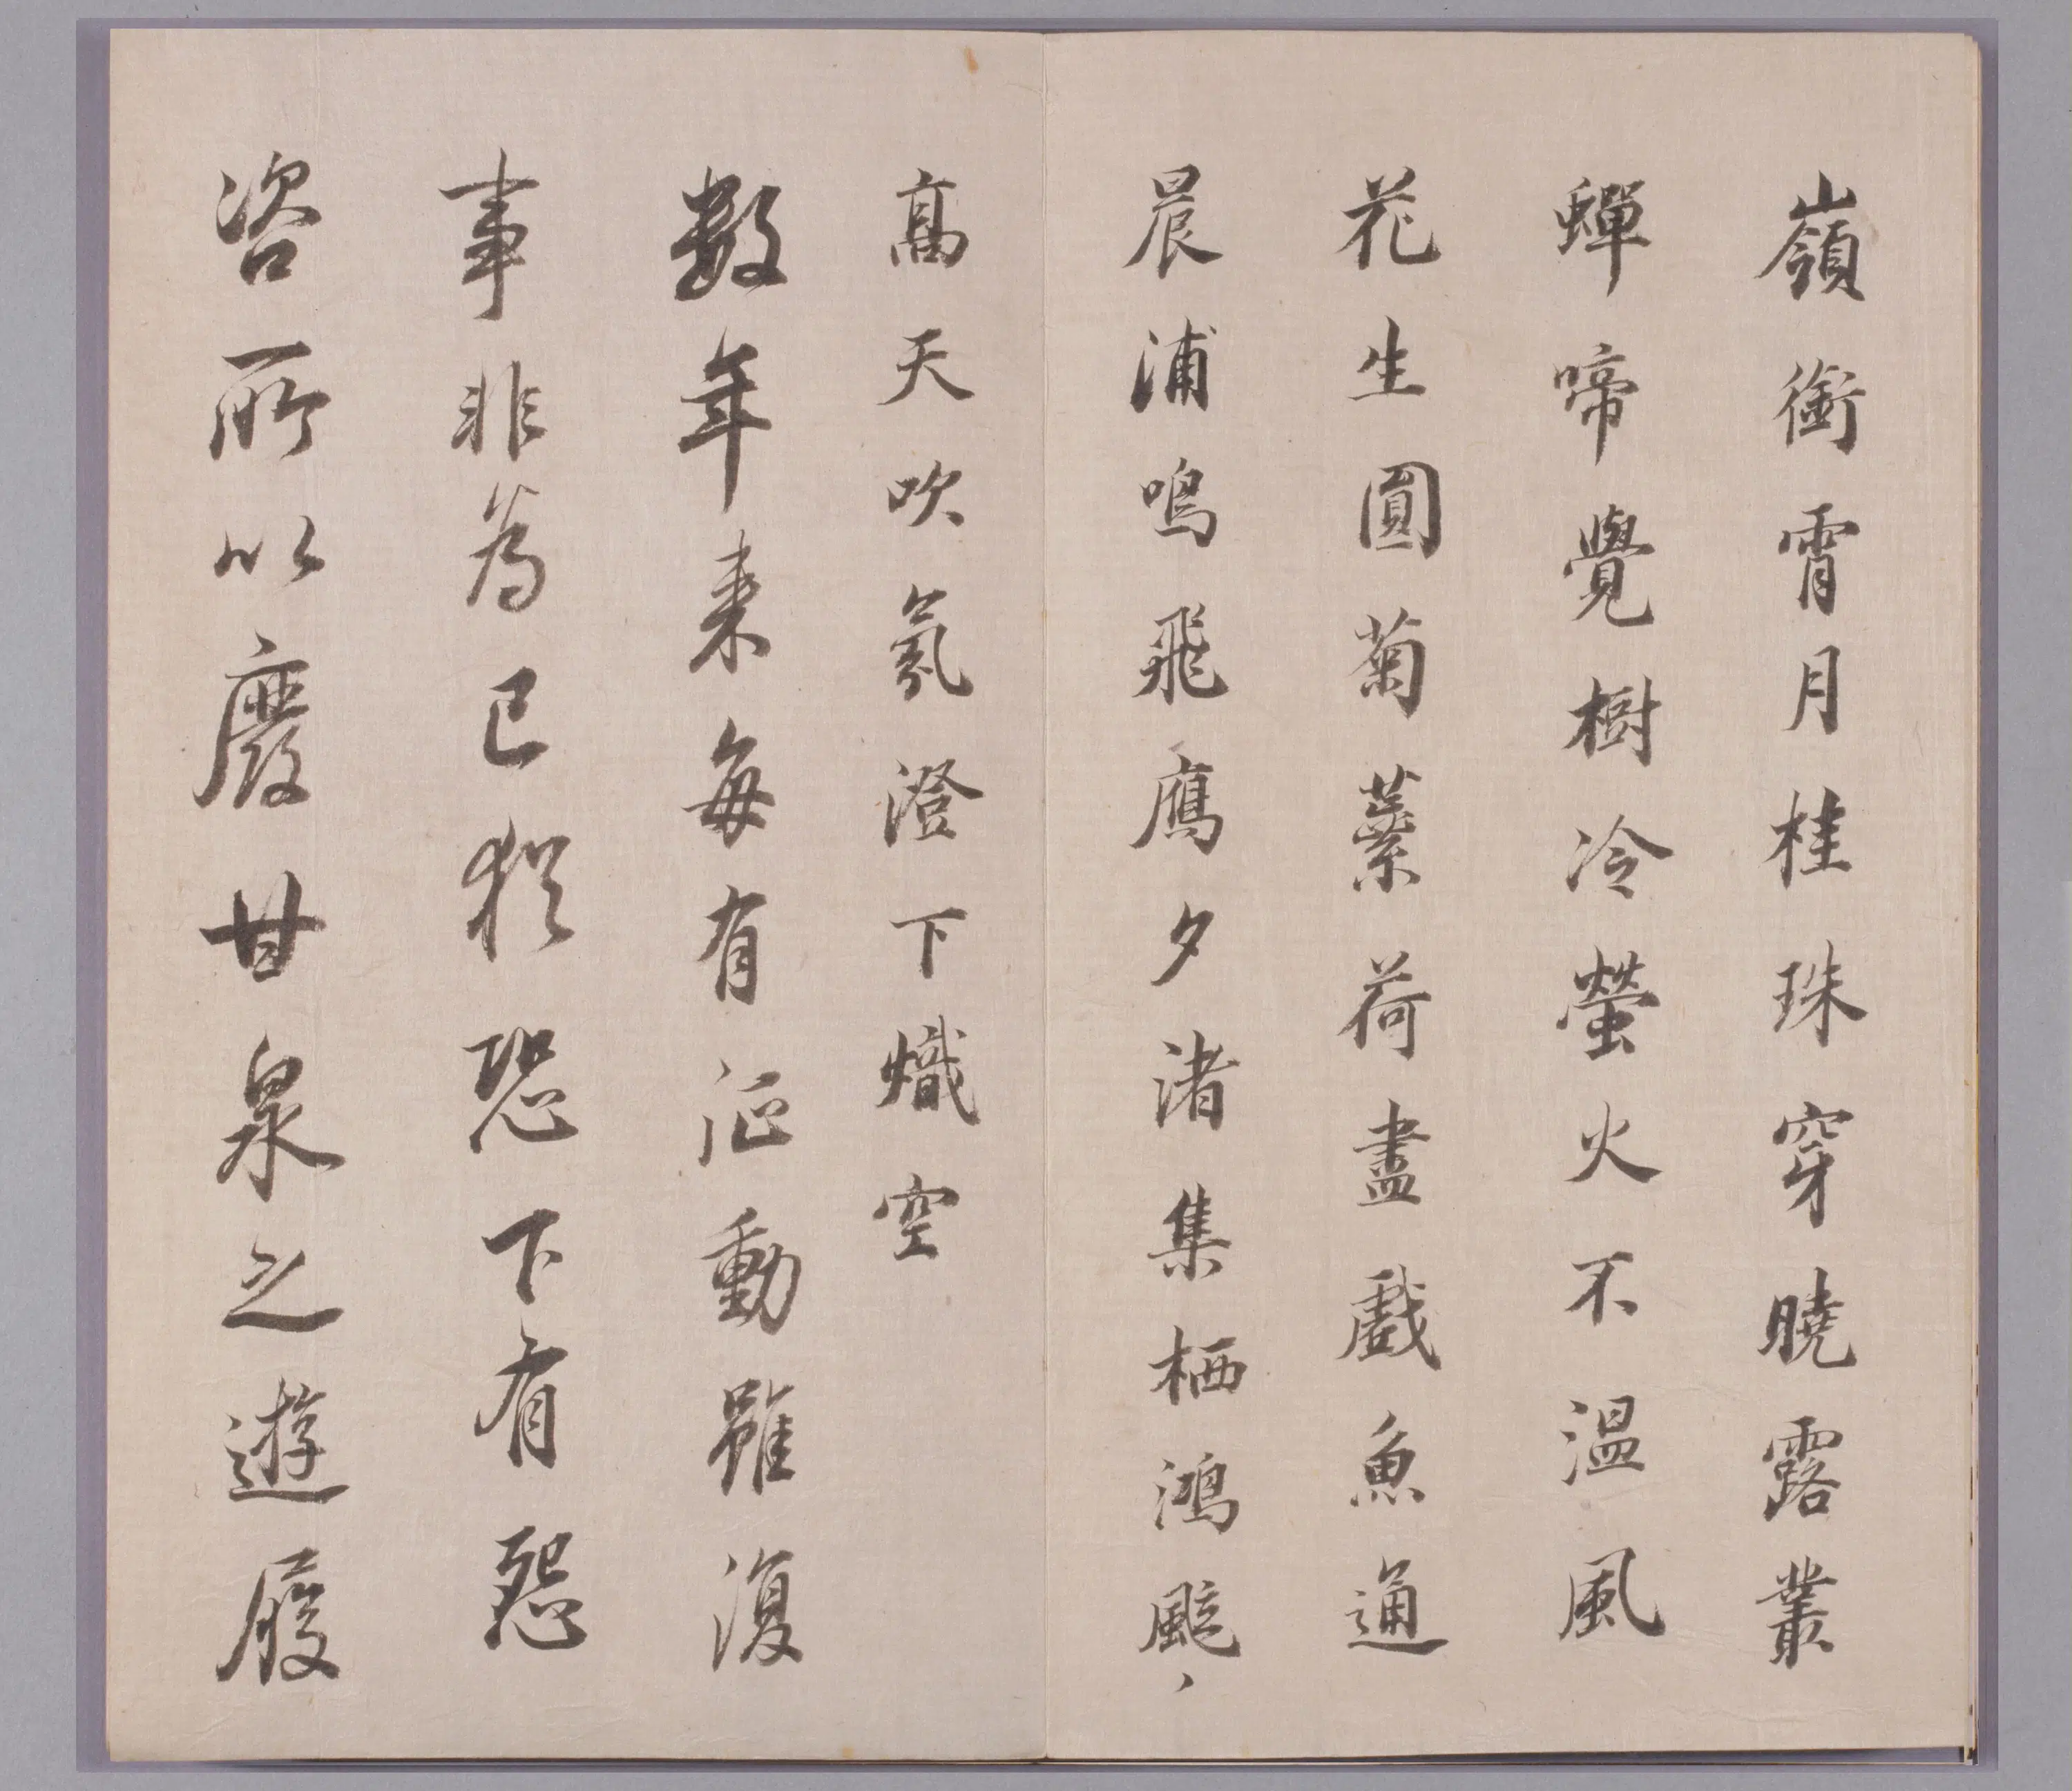 嶺銜霄月桂珠穿曉露叢
蟬啼覺樹冷螢火不溫風
花生圓菊蘂荷盡戲魚通
晨浦鳴飛鴈夕渚集栖鴻颭丶
高天吹氛澄下熾空
數年来每有征動雖復
事非為己猶恐下有怨
咨所以廢甘泉之遊履